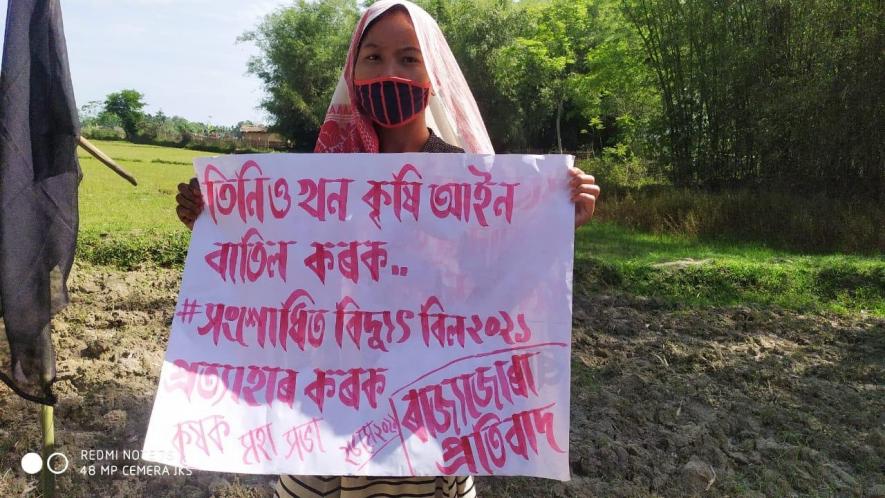 তিনিও খন কৃষি আইন
বাতিল কৰক..
#সংশোধিত বিদ্যুৎ বিল ২০২১
প্ৰত্যাহাৰ কৰক
কৃষক মহা সভা
২৬ মে' ২০২১
ৰাজ্যজোৰা
প্ৰতিবাদ
REDMI NOTE
48 MP CEMERA JKS